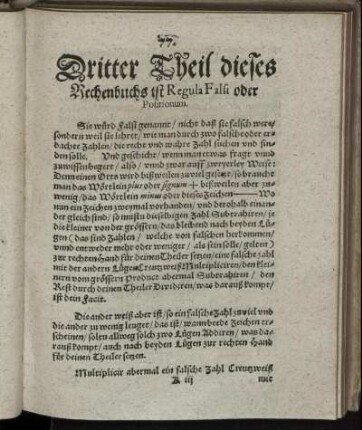 77.
Dritter Theil dieses
Rechenbuchs ist Regula Falsi oder
Positionum.
Sie würd Falsi genannt / nicht daß sie falsch were /
sondern weil sie lehret / wie man durch zwo falsch oder er-
dachte Zahlen / die recht und wahre Zahl suchen und fin-
den solle. Und geschicht / wenn man etwas fragt und
zu wissen begert / also / und zwar auff zweyerley Weise:
Denn einen Orts wird bißweilen zu viel gelögt / so braucht
man das Wörtlein plus oder signum + bißweilen aber zu
wenig / das Wörtlein minus oder dieses Zeichen —— Wo
nun ein Zeichen zweymal vorhanden / und derohalb einan-
der gleich sind / so mustu dieselbigen Zahl Subtrahiren / je
die kleiner von der grössern / das bleibend nach beyden Lü-
gen (das sind Zahlen / welche von falschen herkommen /
und entweder mehr oder weniger / als sein solle / gelten)
zur rechten Hand für deinen Theiler setzen / eine falsche zahl
mit der andern Lügen Creutzweiß Multipliciren / den klei-
nern vom grössern Product abermal Subtrahiren / den
Rest durch deinen Theiler Dividiren / was darauß kompt /
ist dein Facit.
Die ander weiß aber ist / so ein falsche Zahl zu viel und
die ander zu wenig leuget / das ist / wann beede Zeichen er-
scheinen / solen allweg solch zwo Lügen Addiren / was dar-
auß kompt / auch nach beyden Lügen zur rechten Hand
für deinen Theiler setzen.
Multiplicir abermal ein falsche Zahl Creutzweiß
K iij